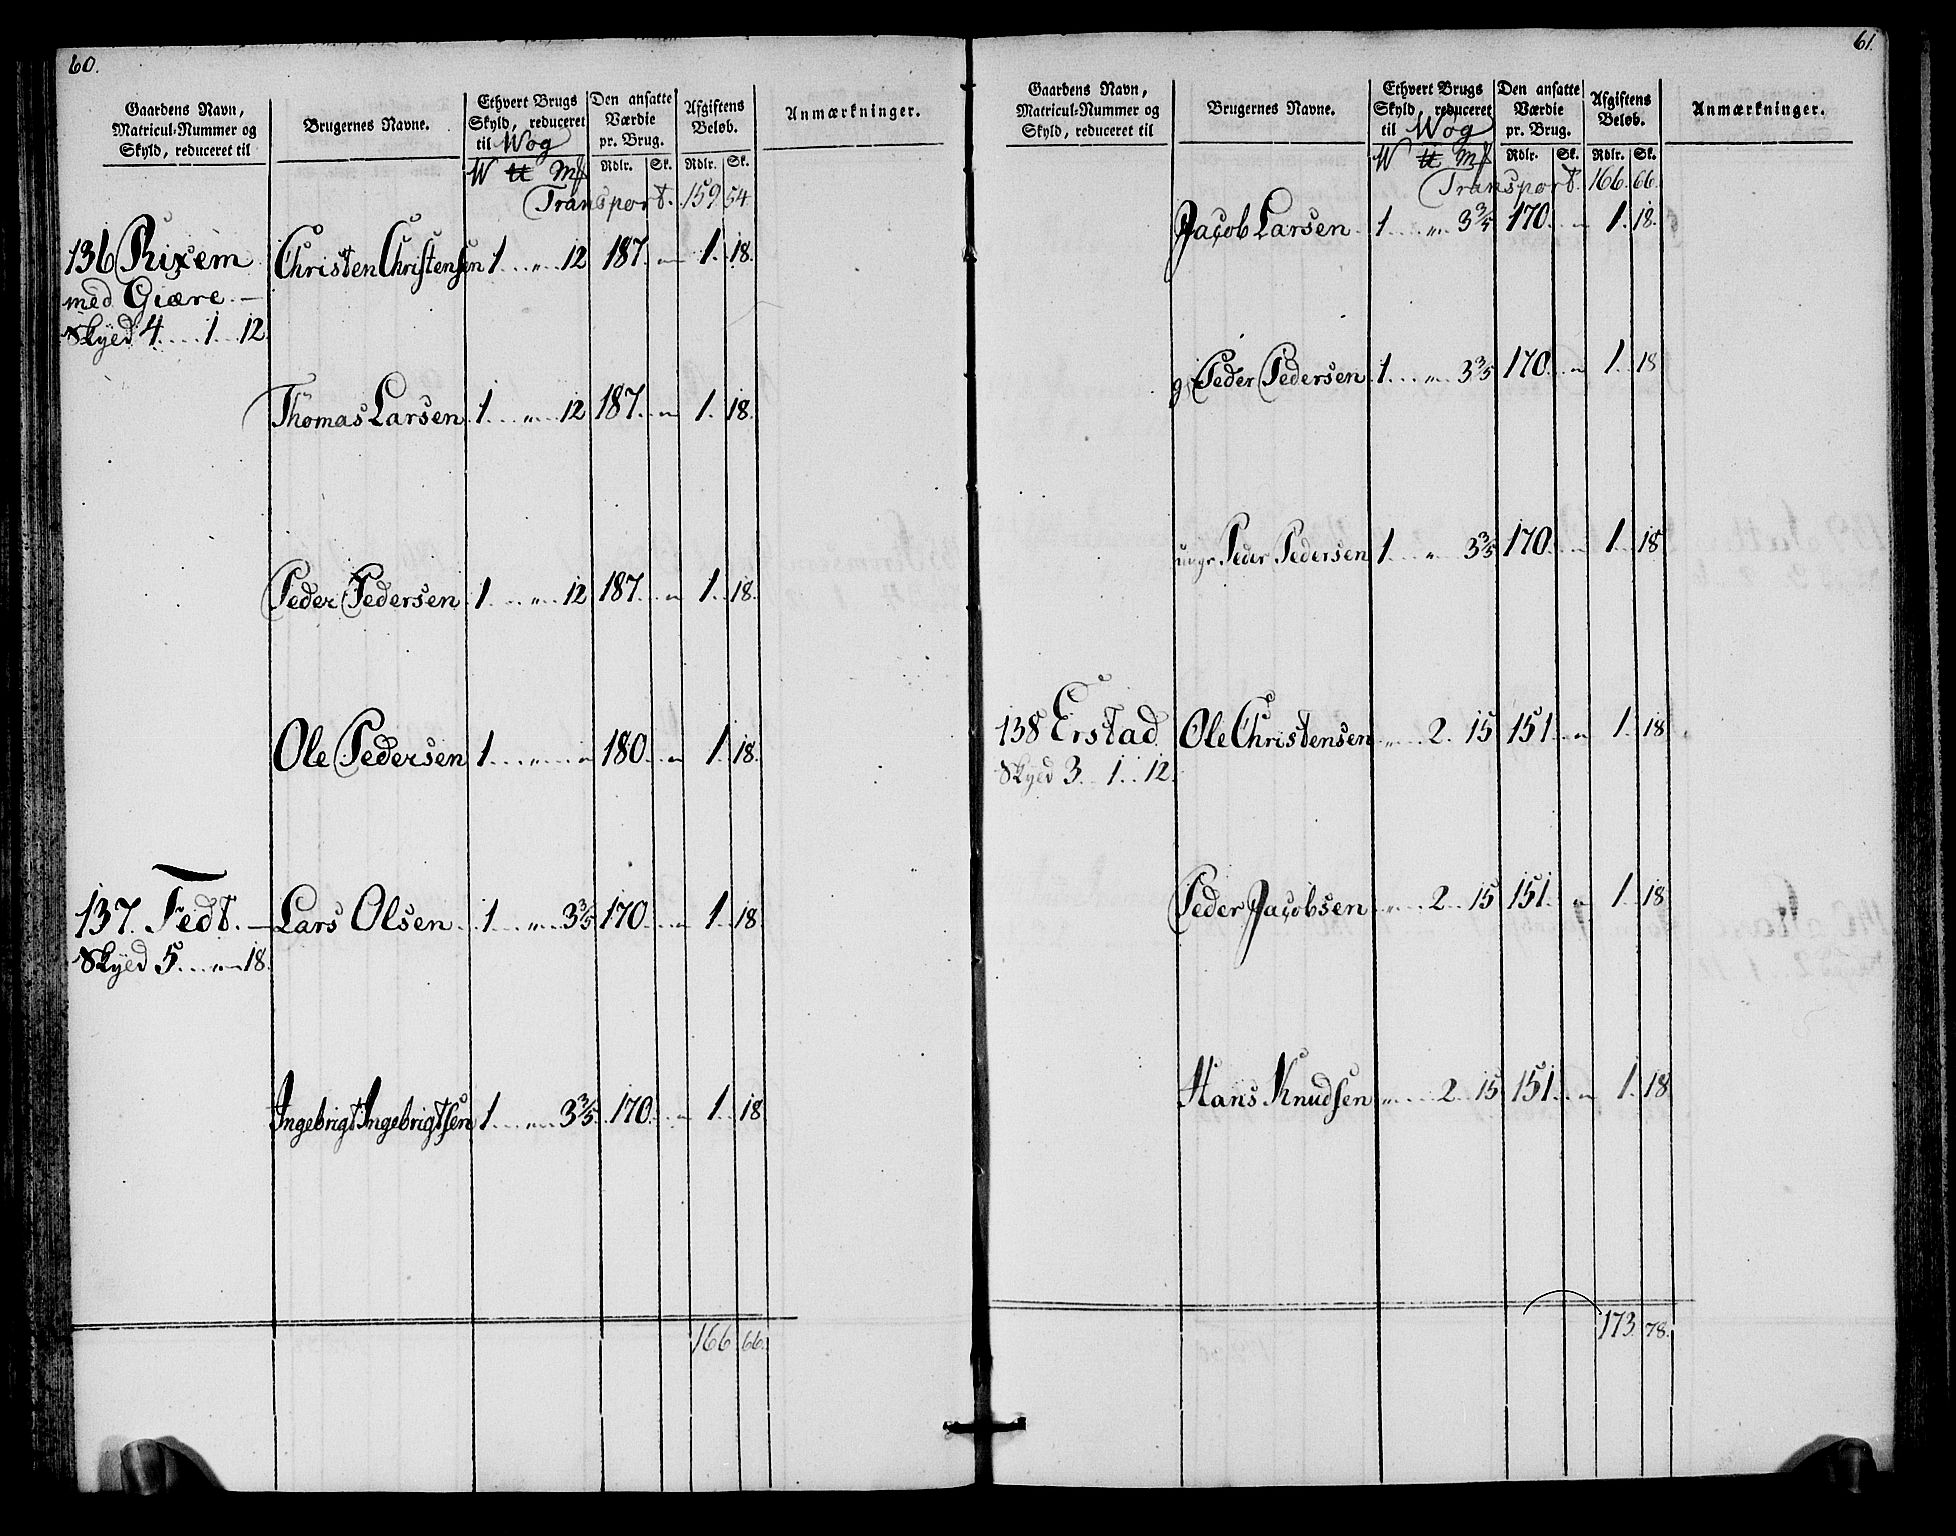 60.
Gaardens Navn, Matricul-Nummer og Skyld, reduceret til
Brugernes Navne.
Ethvert Brugs Skyld, reduceret til Wog
W ℔ Mk
Den ansatte Værdie pr. Brug.
Rdlr. Sk.
Afgiftens Beløb.
Rdlr. Sk.
Anmærkninger.
Transport. 159 54
136 Rixem Christen Christensen 1 . . . „ . . 12 187. „ 1. 18.
med Giære. —
Skyed 4 . . . . 1 . . 12.
Thomas Larsen 1 . . . „ . . 12 187. „ 1. 18.
Peder Pedersen 1 . . . „ . . 12 187. „ 1. 18.
Ole Pedersen 1 . . . „ . . „ 180. „ 1. 18.
137. Fedt. — Lars Olsen 1 . . . „ . . 3 3/5 170. „ 1. 18.
Skyed 5 . . . „ — 18.
Ingebrigt Ingebrigtsen 1 . . . „ . . 3 3/5 170. „ 1. 18
166 66.
61.
Gaardens Navn, Matricul-Nummer og Skyld, reduceret til
Brugernes Navne.
Ethvert Brugs Skyld, reduceret til Wog
W ℔ Mk
Den ansatte Værdie pr. Brug.
Rdlr. Sk.
Afgiftens Beløb.
Rdlr. Sk.
Anmærkninger.
Transport. 166. 66.
Jacob Larsen 1 . . . „ . 3 3/5 170. „ 1. 18.
gl Peder Pedersen 1 . . . „ . 3 3/5 170. „ 1. 18
ungr Peder Pedersen 1 . . . „ . 3 3/5 170. „ 1. 18
138 Erstad Ole Christensen „ . . . 2. 15 151. „ 1. 18
Skyed 3 . . 1 . . 12.
Peder Jacobsen „ . . . 2 . . 15 151. „ 1. 18
Hans Knudsen „ . . . 2 . . 15 151. „ 1. 18
173. 78.